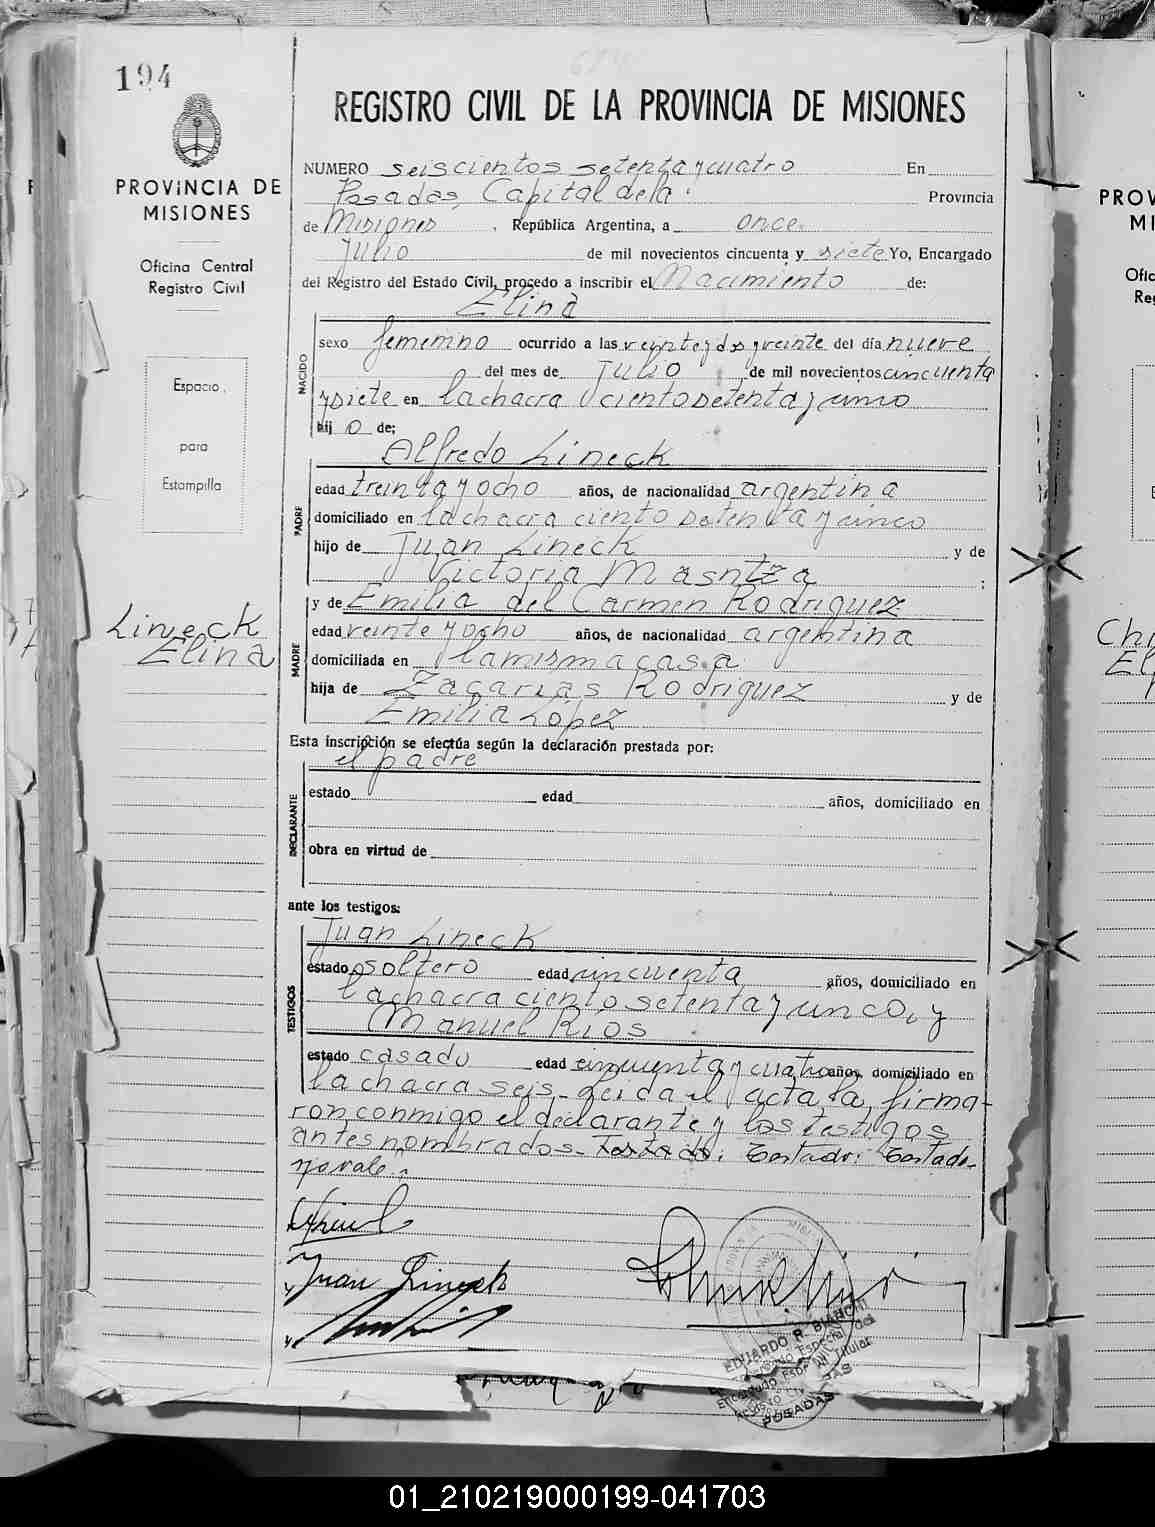 194
PROVINCIA DE
MISIONES
Oficina Central
Registro Civil
Espacio
para
Estampilla
Lineck
Elina
REGISTRO CIVIL DE LA PROVINCIA DE MISIONES
NUMERO seiscientos setenta y cuatro En
Posadas, Capital de la Provincia
de Misiones, República Argentina, a once
Julio de mil novecientos cincuenta y siete Yo, Encargado
del Registro del Estado Civil, procedo a inscribir el Nacimiento de:
Elina
NACIDO
sexo femenino ocurrido a las veinte y dos y veinte del día nueve
del mes de Julio de mil novecientos cincuenta
y siete en la chacra ciento setenta y cinco
hij o de;
Alfredo Lineck
PADRE
edad treinta y ocho años, de nacionalidad argentina
domiciliado en la chacra ciento setenta y cinco
hijo de Juan Lineck y de
Victoria ;
y de Emilia del Carmen Rodriguez
MADRE
edad veinte y ocho años, de nacionalidad argentina
domiciliada en la misma casa
hija de Zacarias Rodriguez y de
Emilia López
Esta inscripción se efectúa según la declaración prestada por:
el padre
DECLARANTE
estado edad años, domiciliado en
obra en virtud de
ante los testigos:
Juan Lineck
TESTIGOS
estado soltero edad cincuenta años, domiciliado en
la chacra ciento setenta y cinco, y
Manuel Ríos
estado casado edad cincuenta y cuatro años, domiciliado en
la chacra seis. Leida el acta la firma-
ron conmigo el declarante y los testigos
antes nombrados. Testado: Testado-
no vale.
Juan Lineck
EDUARDO R. BIANCHI
POSADAS
PROV
MI
Ofic
Reg
01_210219000199-041703